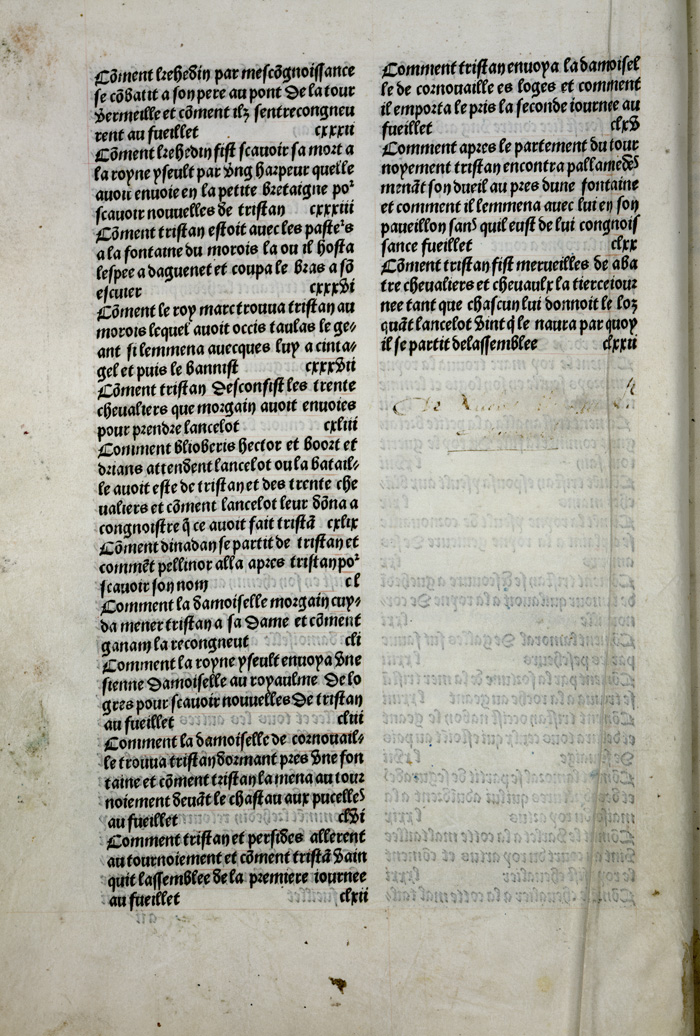 Cõment kehedin par mescõgnoissance
se cõbatit a son pere au pont de la tour
vermeille et cõment ilz sentrecongneu
rent au fueillet cxxxii
Cõment kehedin fist scauoir sa mort a
la royne yseult par vng harpeur quelle
auoit enuoie en la petite bretaigne poꝛ
scauoir nouuelles de tristan cxxxiii
Cõment tristan estoit auec les pasteˀs
a la fontaine du morois la ou il hosta
lespee a daguenet et coupa le bras a sõ
escuier cxxxvi
Cõment le roy marc trouua tristan au
morois lequel auoit occis taulas le ge/
ant si lemmena auecques luy a cinta/
gel et puis le bannist cxxxvii
Cõment tristan desconfist les trente
cheualiers que morgain auoit enuoies
pour prendre lancelot cxliii
Comment blioberis hector et boort et
drians attendent lancelot ou la batail/
le auoit este de tristan et des trente che
ualiers et cõment lancelot leur dõna a
congnoistre q̃ ce auoit fait tristã cxlix
Cõment dinadan se partit de tristan et
commẽt pellinor alla apres tristan poꝛ
scauoir son nom cl
Comment la damoiselle morgain cuy/
da mener tristan a sa dame et cõment
ganam la recongneut cli
Comment la royne yseult enuoya vne
sienne damoiselle au royaulme de lo
gres pour scauoir nouuelles de tristan
au fueillet clui
Comment la damoiselle de cornouail/
le trouua tristan dormant pres vne fon
taine et cõment tristan la mena au tour
noiement deuãt le chastau aux pucelles
au fueillet clvi
Comment tristan et persides allerent
au tournoiement et cõment tristã vain
quit lassemblee de la premiere iournee
au fueillet clxii
Comment tristan enuoya la damoisel
le de cornouaille es loges et comment
il emporta le pris la seconde iournee au
fueillet clxv
Comment apres le partement du tour
noyement tristan encontra pallamedes
menãt son dueil au pres dune fontaine
et comment il lemmena auec lui en son
paueillon sans quil eust de lui congnois
sance fueillet clxx
Cõment tristan fist merueilles de aba
tre cheualiers et cheuaulx la tierce iour
nee tant que chascun lui donnoit le loz
quãt lancelot vint q̃ le naura par quoy
il se partit delassemblee clxxii